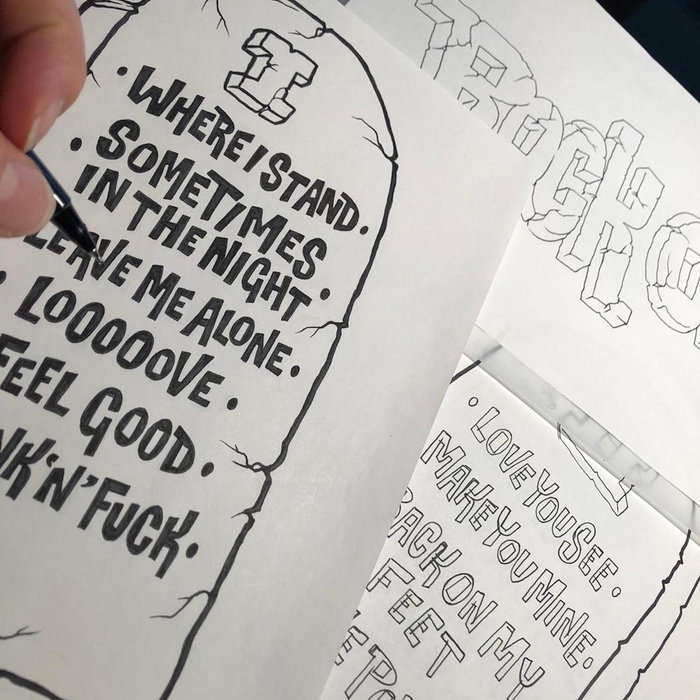 I
· WHERE I STAND ·
· SOMETIMES
IN THE NIGHT ·
LEAVE ME ALONE ·
· LOOOOOVE ·
FEEL GOOD ·
NK'N'FUCK ·
Rock
· LOVE YOU SEE ·
MAKE YOU MINE ·
BACK ON MY
FEET